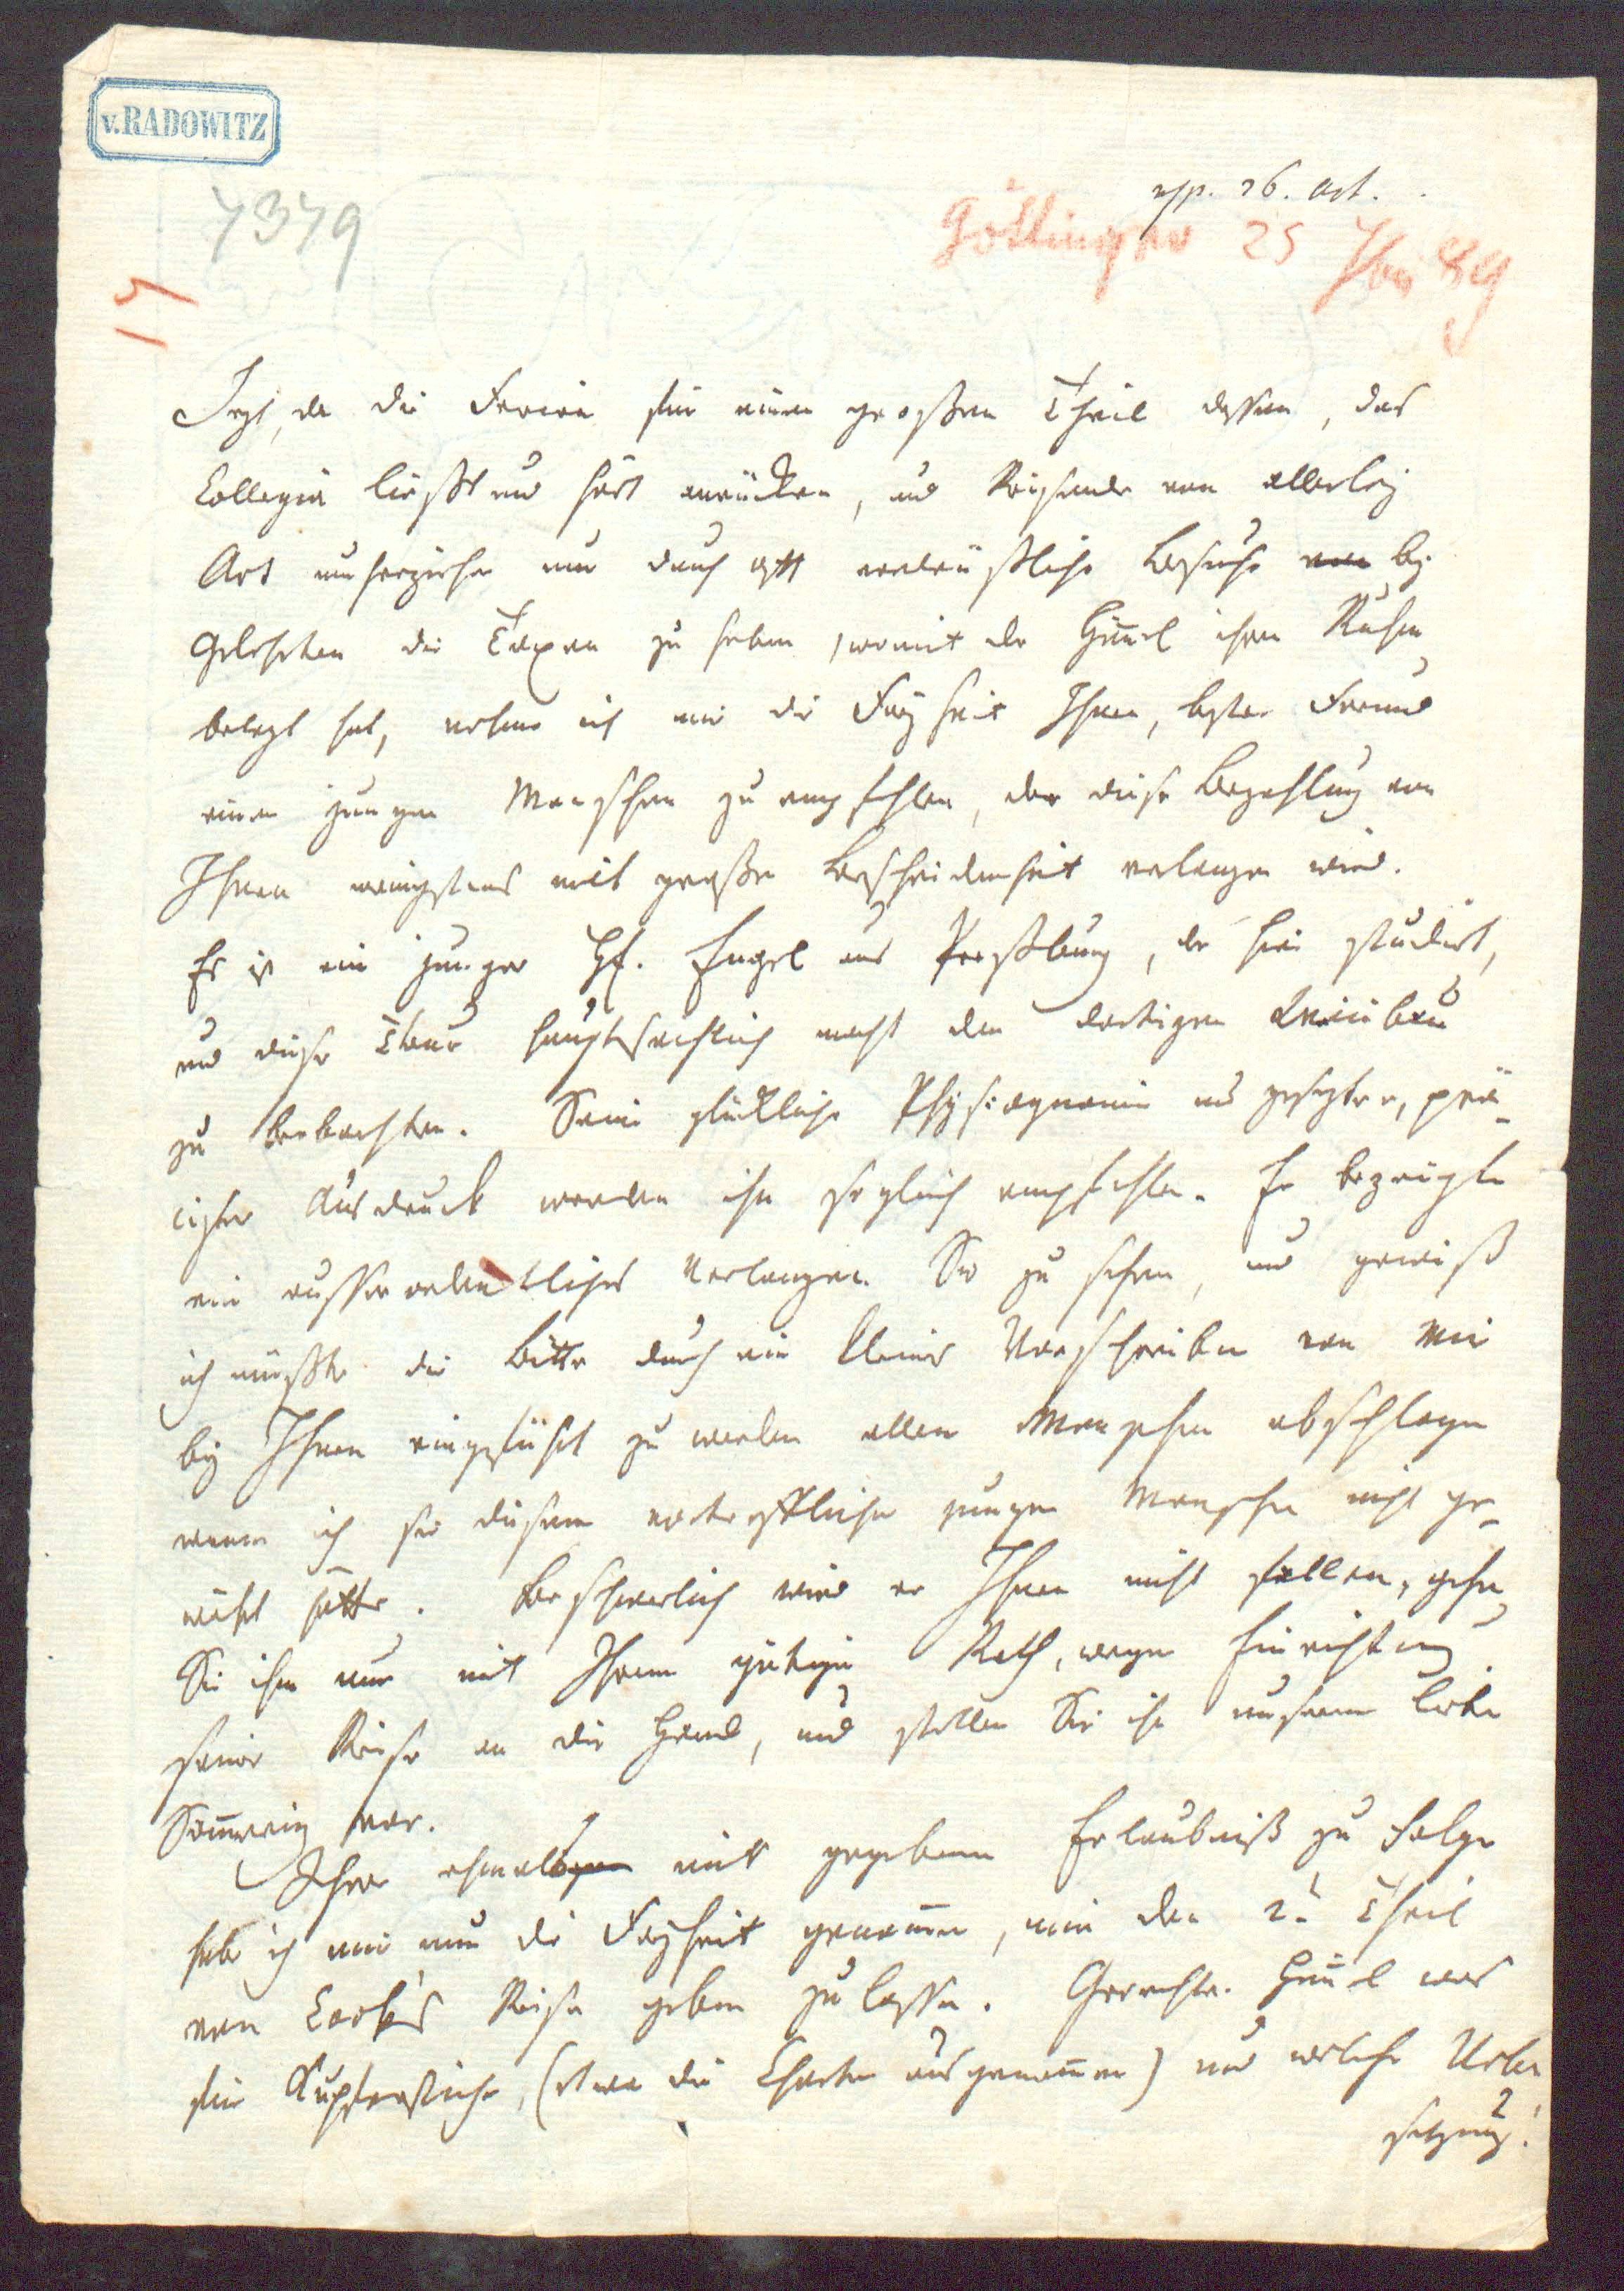 v. RADOWITZ
7379
rsp. 26. Oct.
Göttingen 25 89
Jezt, da die Ferien für einen großen Theil dessen, das
Collegia ließt und hört anrücken, und Reisende von allerley
Art umherziehen um durch oft verdrüßliche Besuche von bey
Gelehrten die Taxen zu heben, womit der Himmel ihren Ruhm
belegt hat, nehme ich mir die Freyheit Ihnen, bester Freund
einen jungen Menschen zu empfehlen, der diese Bezahlung von
Ihnen wenigstens mit großer Bescheidenheit verlangen wird.
Es ist ein junger Hr. Engel aus Preßburg, der hier studirt,
und diese Tour hauptsächlich macht den dortigen Weinbau
zu beobachten. Seine glückliche Physiognomie und gesezter, prä-
ciser Ausdruck werden ihn sogleich empfehlen. Er bezeigte
ein ausserordentliches Verlangen Sie zu sehen, und gewiß
ich müßte die Bitte durch ein kleines Vorschreiben von mir
bey Ihnen eingeführt zu werden allen Menschen abschlagen
wenn ich sie diesem vortrefflichen jungen Menschen nicht ge-
währt hätte. Beschwerlich wird er Ihnen nicht fallen, gehen
Sie ihm nur mit Ihrem gütigen Rath, wegen Einrichtung
seiner Reise an die Hand, und stellen Sie ihn unserm lieben
Sömmering vor.
Ihrer ehmals mir gegebenen Erlaubniß zu Folge
habe ich mir nun die Freyheit genommen, mir den 2. Theil
von Cook's Reise geben zu lassen. Gerechter Himmel was
für Kupferstiche, (etwa die Charten ausgenommen) und welche Ueber
setzung!